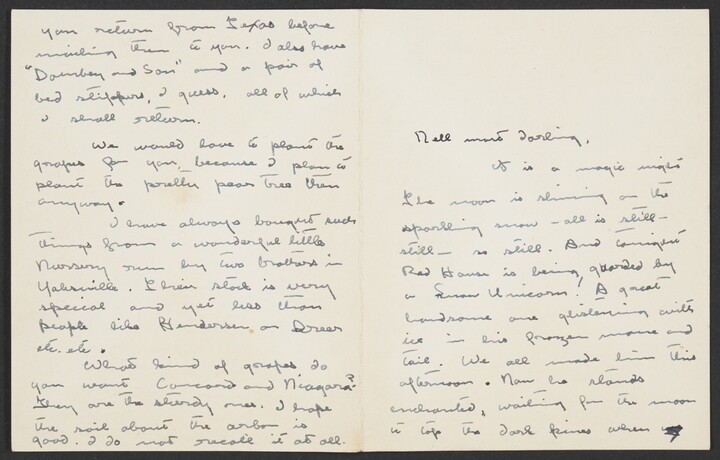 you return from Texas before
mailing them to you. I also have
"Dombey and Son" and a pair of
bed slippers, I guess, all of which
I shall return.
We would have to plant the
grapes for you, because I plan to
plant the pretty pear tree then
anyway.
I have always bought such
things from a wonderful little
Nursery run by two brothers in
Yalesville. Their stock is very
special and yet less than
people like Henderson or Dreer
etc. etc.
What kind of grapes do
you want Concord and Niagara?
They are the sturdy ones. I hope
the soil about the arbor is
good. I do not recall it at all.
Nell most darling,
It is a magic night
The moon is shining on the
sparkling snow – all is still –
still – so still. And tonight
Red House is being guarded by
a Snow Unicorn! A great
handsome one glistening with
ice in his frozen mane and
tail. We all made him this
afternoon. Now he stands
enchanted, waiting for the moon
to top the dark pines when